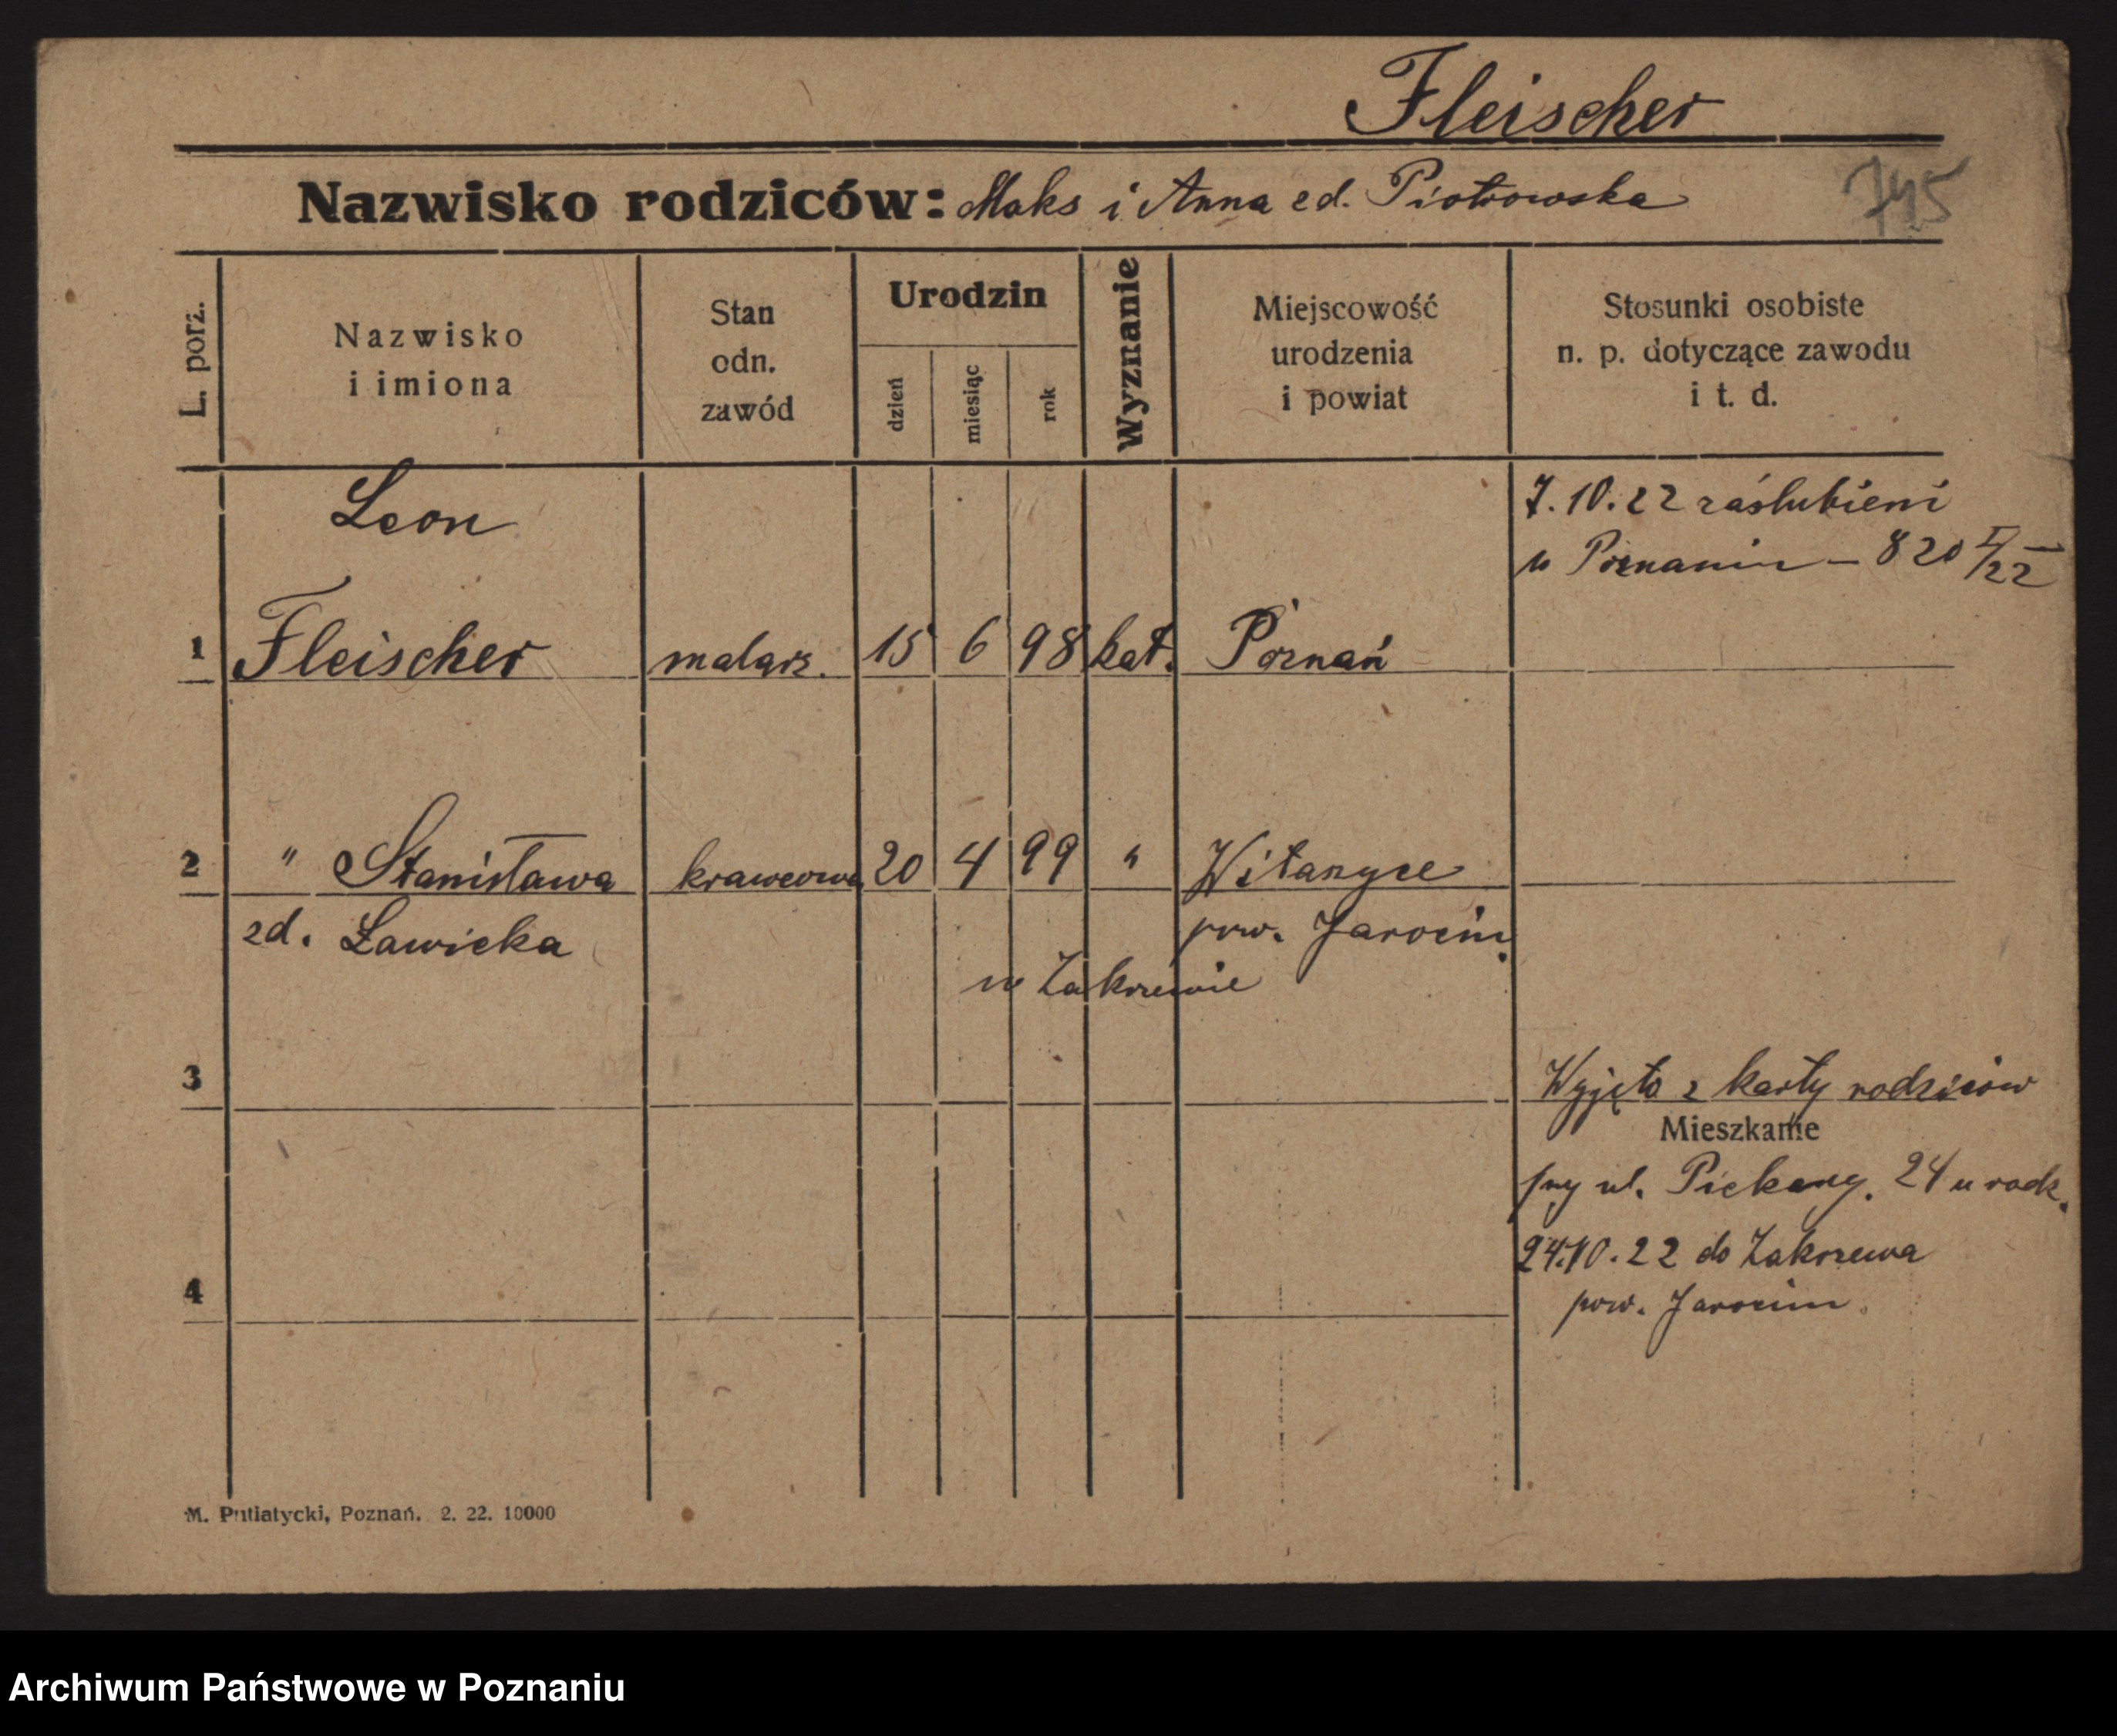 Fleischer
Nazwisko rodziców: Maks i Anna zd. Piotrowska
745
L. porz.
Nazwisko
i imiona
Stan
odn.
zawód
Urodzin
dzień
miesiąc
rok
Wyznanie
Miejscowość
urodzenia
i powiat
Stosunki osobiste
n. p. dotyczące zawodu
i t. d.
Leon
7.10.22 zaślubieni
w Poznaniu – 820 I/22
1 Fleischer malarz. 15 6 98 kat. Poznań
2 " Stanisława krawcowa 20 4 99 " Witaszyce
zd. Ławicka pow. Jarocin
w Zakrzewie
3
Wyjęto z karty rodziców
Mieszkanie
przy ul. Piekary. 24 u rodz.
24.10.22 do Zakrzewa
4
pow. Jarocin.
M. Putiatycki, Poznań. 2. 22. 10000
Archiwum Państwowe w Poznaniu